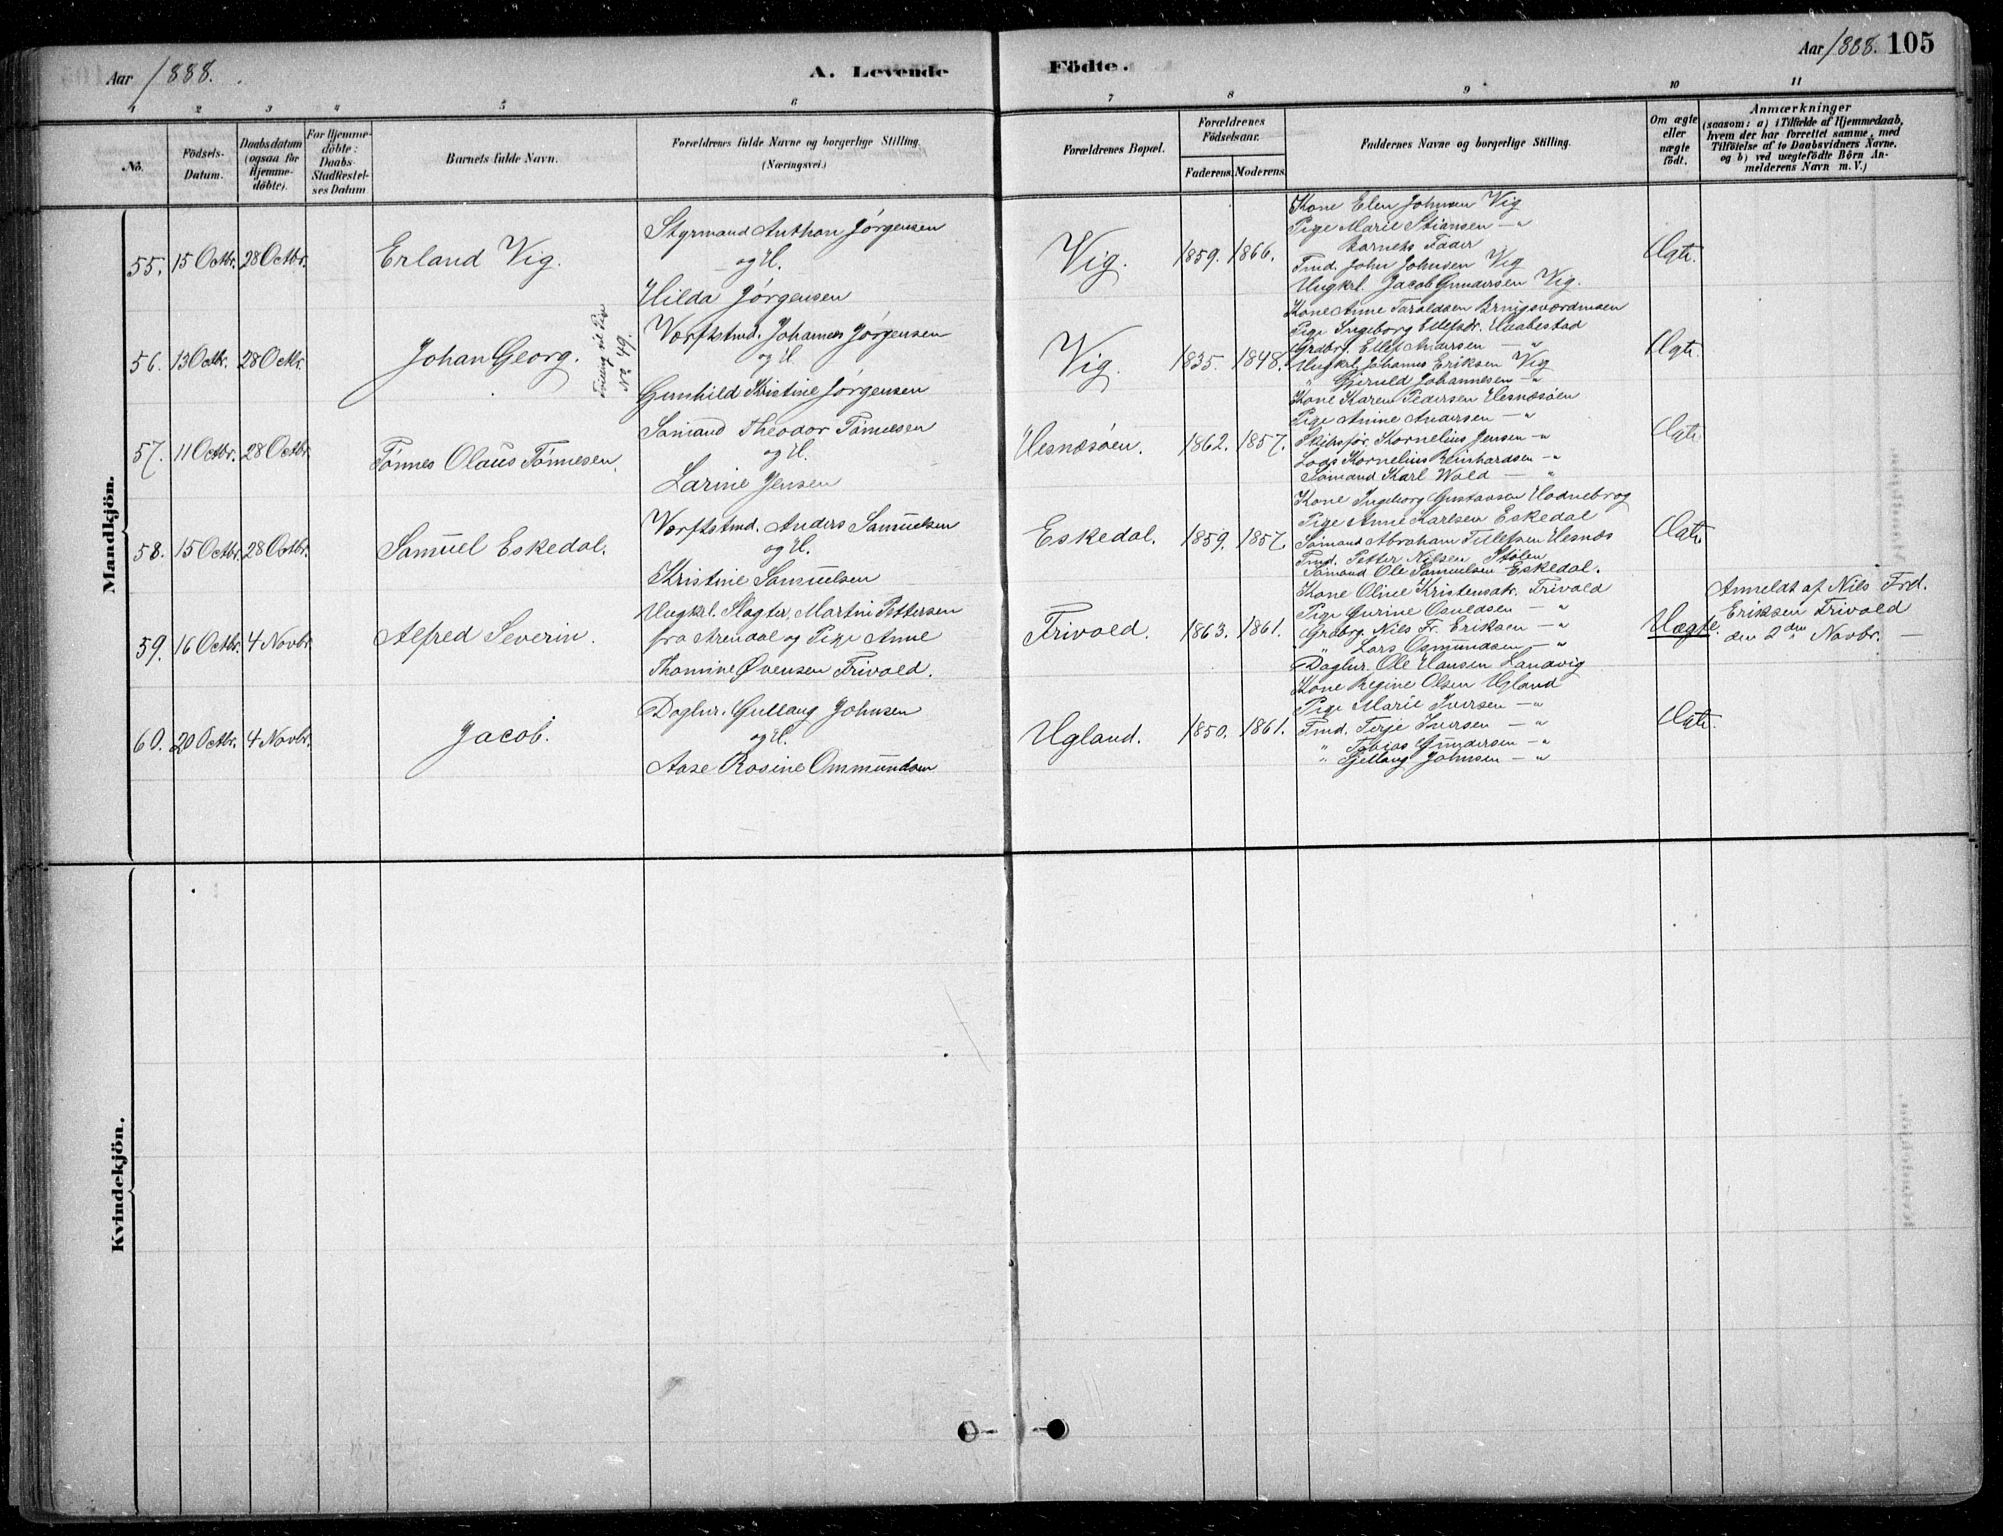 Aar 1888.
A. Levende
Födte.
Aar 1888. 105
1 2 3 4 5 6 7 8 9 10 11
No.
Födsels-
Datum.
Daabsdatum
(ogsaa for
Hjemme-
döbte).
For Hjemme-
döbte:
Daabs-
Stadfæstel-
ses Datum
Barnets fulde Navn.
Forældrenes fulde Navne og borgerlige Stilling.
(Næringsvei.)
Forældrenes Bopæl.
Forældrenes
Födselsaar.
Faderens. Moderens.
Faddernes Navne og borgerlige Stilling.
Om ægte
eller
uægte
födt.
Anmærkninger
(saasom: a) i Tilfælde af Hjemmedaab,
hvem der har forrettet samme, med
Tilföielse af to Daabsvidners Navne,
og b) ved uægtefödte Börn An-
melderens Navn m. V.)
Mandkjön.
55. 15 Octbr. 28 Octbr. Erland Vig.
Styrmand Anthon Jörgensen
og H.
Hilda Jörgensen
Vig. 1859. 1866.
Kone Elen Johnsen Vig
Pige Marie Stiansen — "
Barnets Fader
Tmd. John Johnsen Vig
Ungkrl. Jacob Gundersen Vig.
Ægte.
56. 13 Octbr. 28 Octbr. Johan Georg.
Tvilling til Pige
No 49.
Værftstmd. Johannes Jörgensen
og H.
Gunhild Kristine Jörgensen
Vig. 1835. 1848.
Kone Anne Taraldsen
Pige Ingeborg Ellefsdr. Haabestad
Grdbr. Ellef Andersen — "
Ungkrl. Johannes Eriksen Vig
" Johannesen — "
Ægte
57. 11 Octbr. 28 Octbr. Tönnes Olaus Tönnesen.
Sömand Theodor Tönnesen
og H.
Larine Jensen
Hesnæsöen. 1862. 1857.
Kone Karen Pedersen Hesnæsöen
Pige Anine Andersen — "
Skibsför. Kornelius Jensen — "
Lods Kornelius Reinhardsen — "
Sömand Karl Wold — "
Ægte
58. 15 Octbr. 28 Octbr. Samuel Eskedal.
Værftstmd. Anders Samuelsen
og H.
Kristine Samuelsen
Eskedal. 1859. 1857.
Kone Ingeborg Gustavsen Hodnebrog
Pige Anne Karlsen Eskedal
Sömand Abraham Tellefsen Hesnæs
Tmd. Petter Nilsen Stölen
Sömand Ole Samuelsen Eskedal.
Ægte
59. 16 Octbr. 4 Novbr. Alfred Severin.
Ungkrl. Slagter, Martin Pettersen
fra Arendal og Pige Anne
Thomine Övensen Frivold.
Frivold. 1863. 1861.
Kone Oline Kristensdtr. Frivold
Pige Gurine Osuldsen — "
Grdbrg. Nils Fr. Eriksen — "
" Lars Osmundsen — "
Daglnr. Ole Hansen Landvig
Uægte.
Anmeldt af Nils Frd.
Eriksen Frivold
den 2den Novbr. —
60. 20 Octbr. 4 Novbr. Jacob.
Daglnr. Gullaug Johnsen
og H.
Aase Rosine Ommundsen
Ugland. 1850. 1861.
Kone Regine Olsen Ugland
Pige Marie Iversen — "
Tmd. Terje Iversen — "
" Tobias Gundersen — "
" Gjellaug Johnsen — "
Ægte.
Kvindekjön.